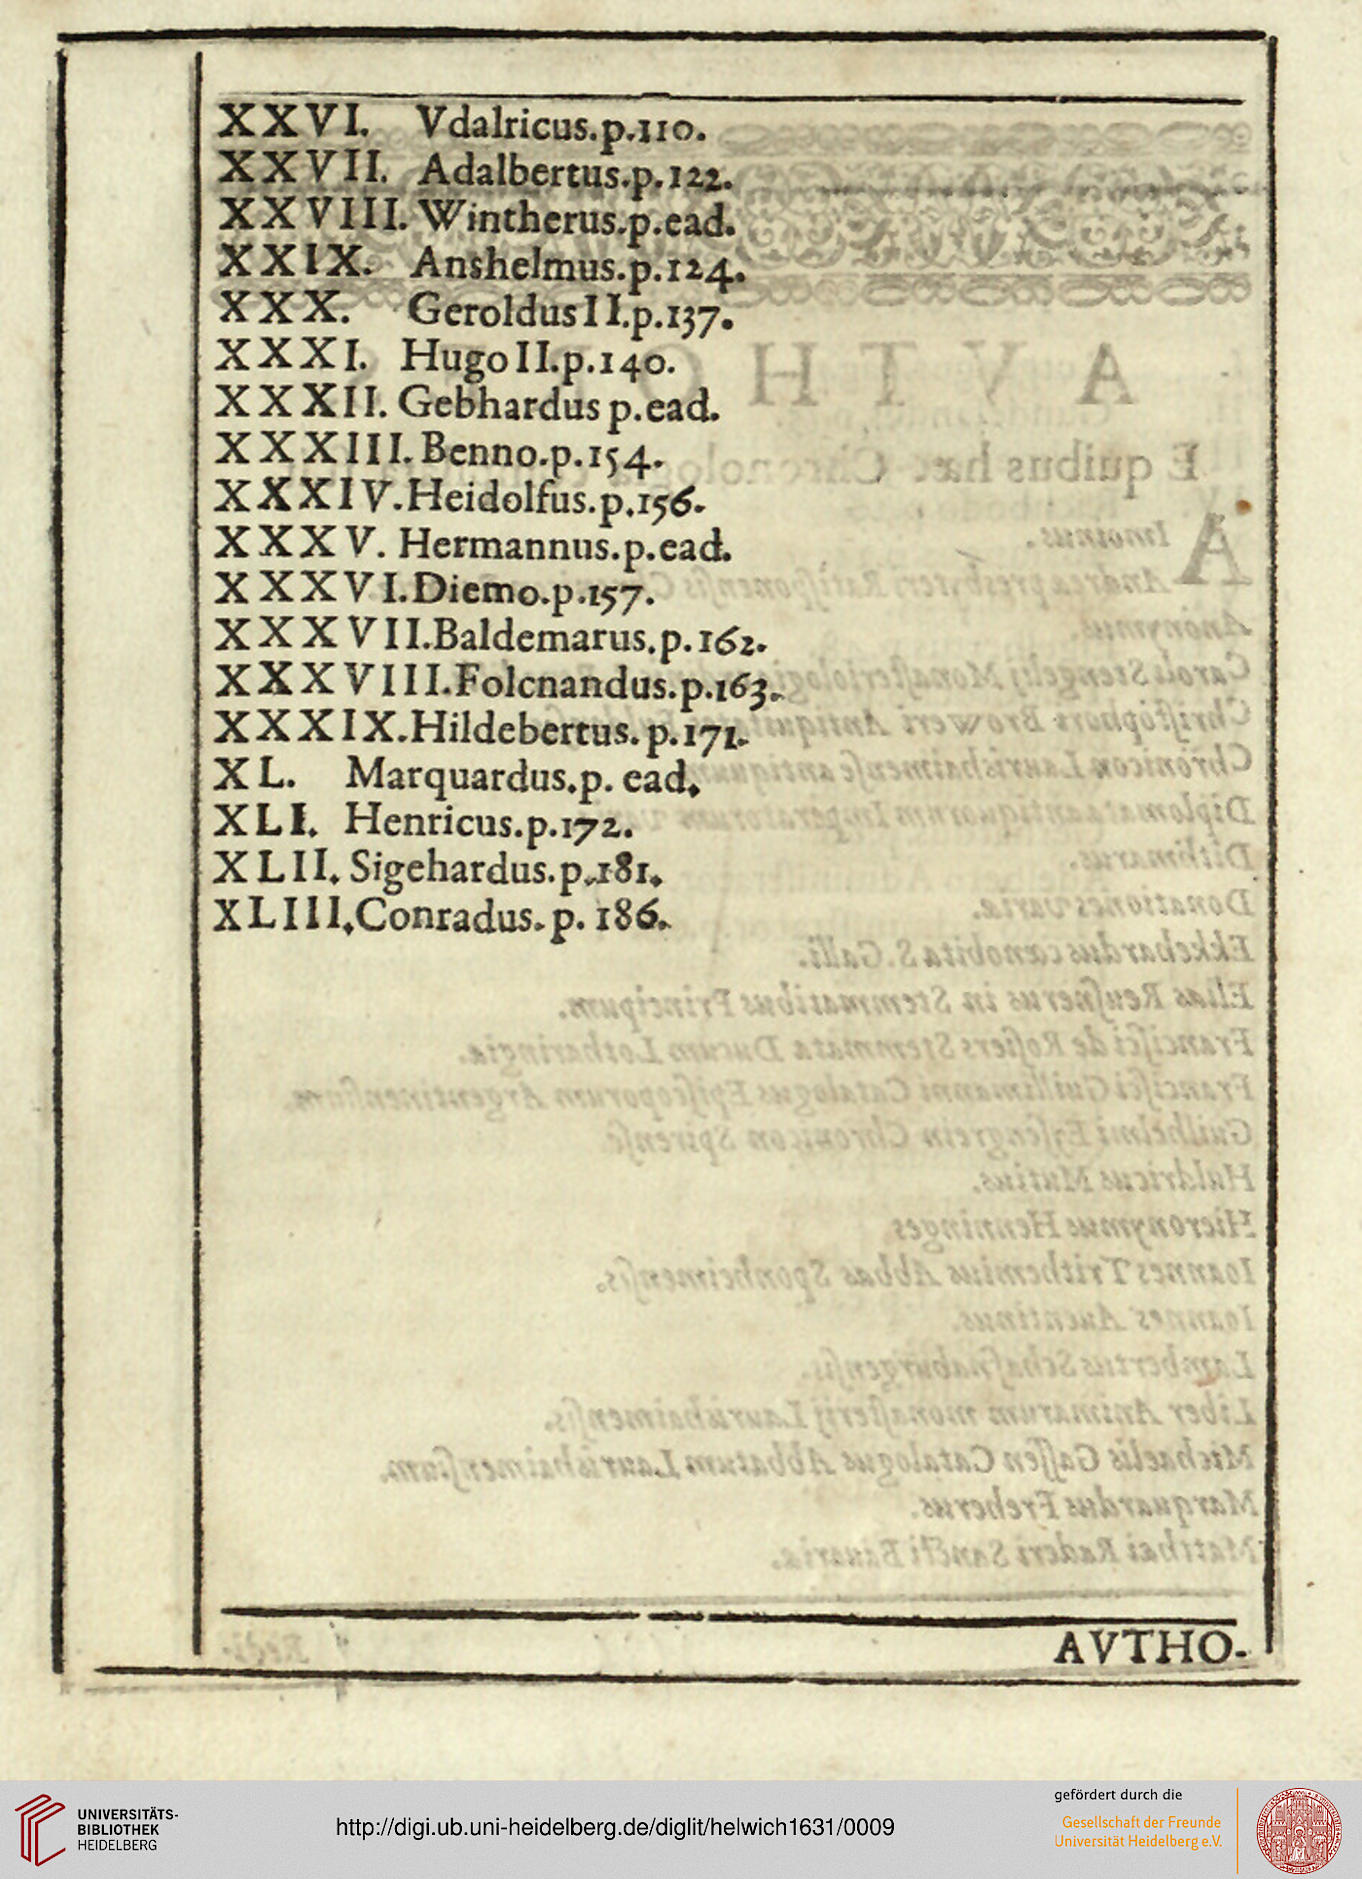 XXVI. Vdalricus.p.110.
XXVII. Adalbertus.p.122.
XXVIII. Wintherus.p.ead.
XXIX. Anshelmus.p.124.
XXX. Geroldus II.p.137.
XXXI. Hugo II.p.140.
XXXII. Gebhardus p.ead.
XXXIII. Benno.p.154.
XXXIV.Heidolfus.p.156.
XXXV. Hermannus.p.ead.
XXXVI.Diemo.p.157.
XXXVII.Baldemarus.p.162.
XXXVIII.Folcnandus.p.163.
XXXIX.Hildebertus.p.171.
XL. Marquardus.p. ead.
XLI. Henricus.p.172.
XLII. Sigehardus.p.181.
XLIII.Conradus.p. 186.
AVTHO-
UNIVERSITÄTS-
BIBLIOTHEK
HEIDELBERG
http://digi.ub.uni-heidelberg.de/diglit/helwich1631/0009
gefördert durch die
Gesellschaft der Freunde
Universität Heidelberg e.V.